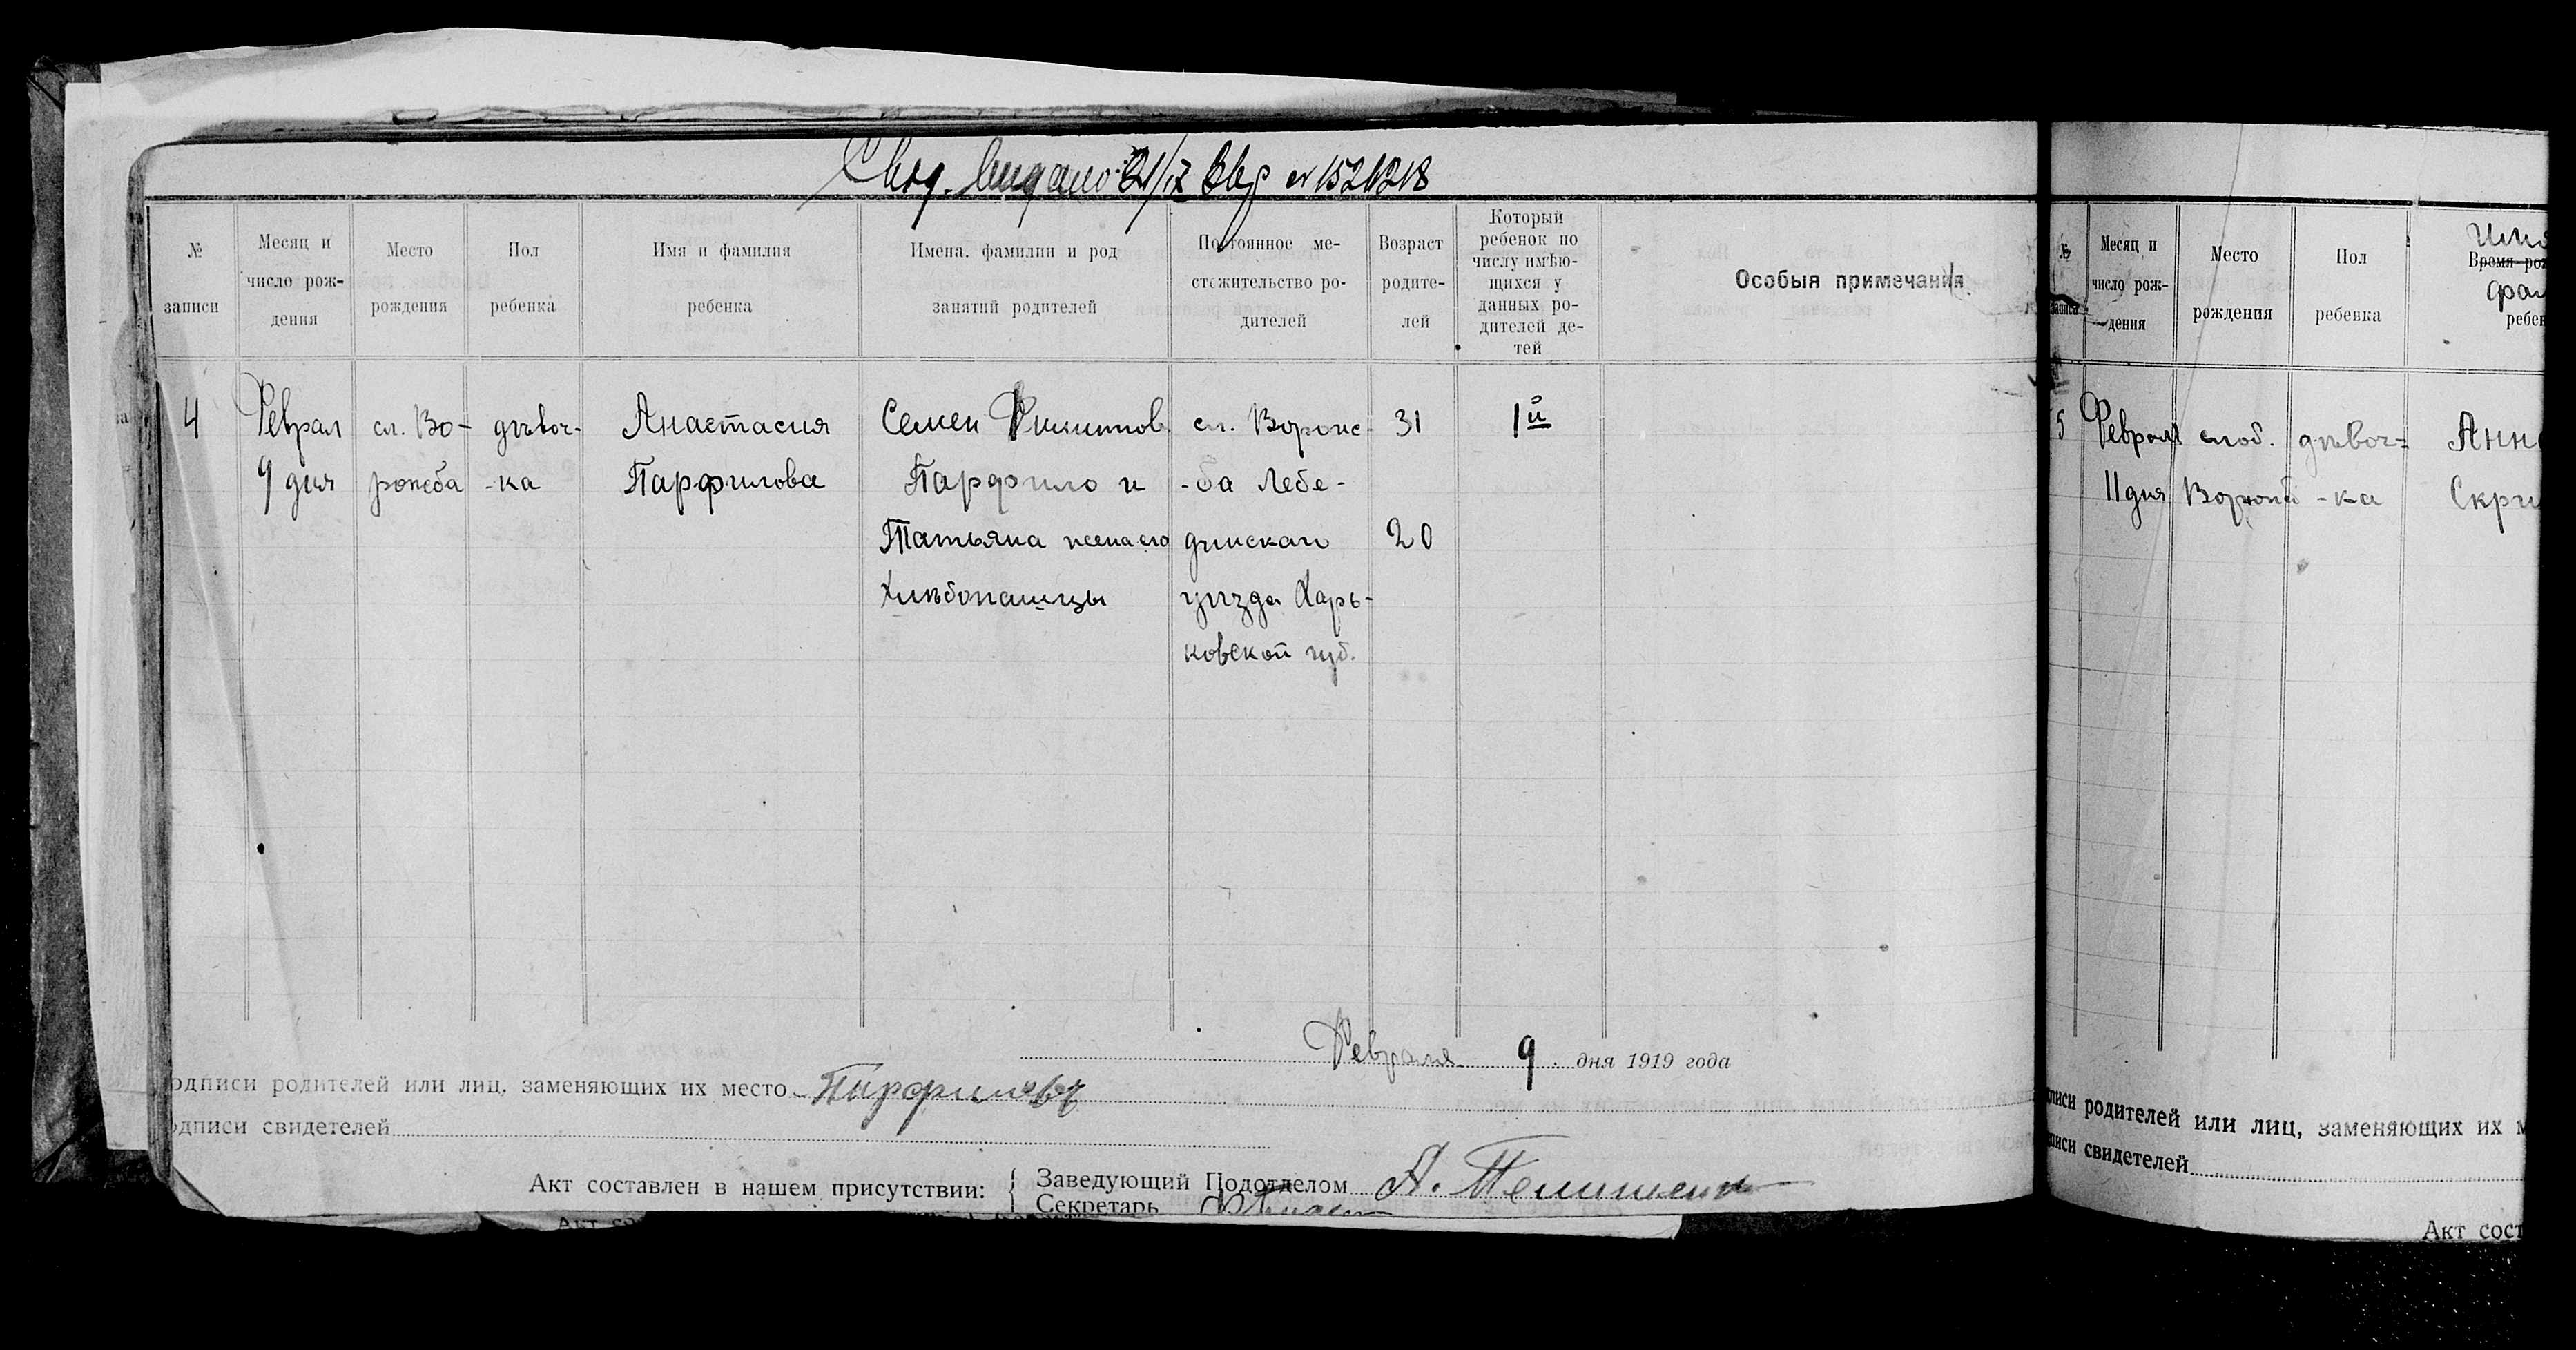 № записи
Месяц и число рож- дения
Место рождения
Пол ребенка
Имя и фамилия ребенка
Имена. фамилии и род занятий родителей
Постоянное ме- стожительство ро- дителей
Возраст родите- лей
Который ребенок по числу имѣю- щихся у данных ро- дителей де- тей
Особыя примечания
4
Феврал
9 дня
сл. Во-
рожба
дѣвоч-
-ка
Анастасия
Парфилова
Семен Филиппов
Парфило и
Татьяна жена его
Хлѣбопашцы
сл. Ворож-
-ба Лебе-
динскаго
уѣзда Харь-
ковской губ.
31
20
1й
Февраля 9 дня 1919 года
одписи родителей или лиц, заменяющих их место
одписи свидетелей
Акт составлен в нашем присутствии:
Заведующий Подотделом А.
Секретарь
№ записи
Месяц и число рож- дения
Место рождения
Пол ребенка
Время рож
ребен
5
Февраля
11 дня
слоб.
Ворожба
дѣвоч-
-ка
Анн
Скри
писи родителей или лиц, заменяющих их м
писи свидетелей
Акт сост